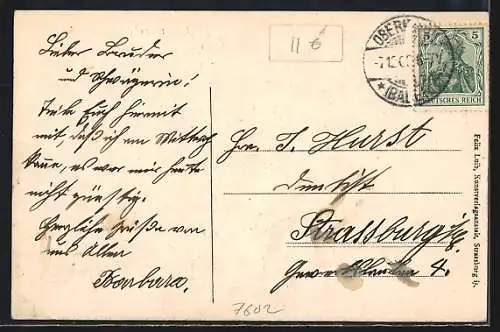 Lieber Bruder
und Schwägerin!
Teile Euch hiermit
mit, daß ich am Mittwoch
komme, es war mir heute
nicht günstig.
Herzliche Grüße von
uns Allen
Barbara.
11 €
OBERK
(BA
5 5
DEUTSCHES REICH
J. Hurst
Dentist
Strassburg
4.
7602
Felix Luib, Kunstverlagsanstalt, Strassburg